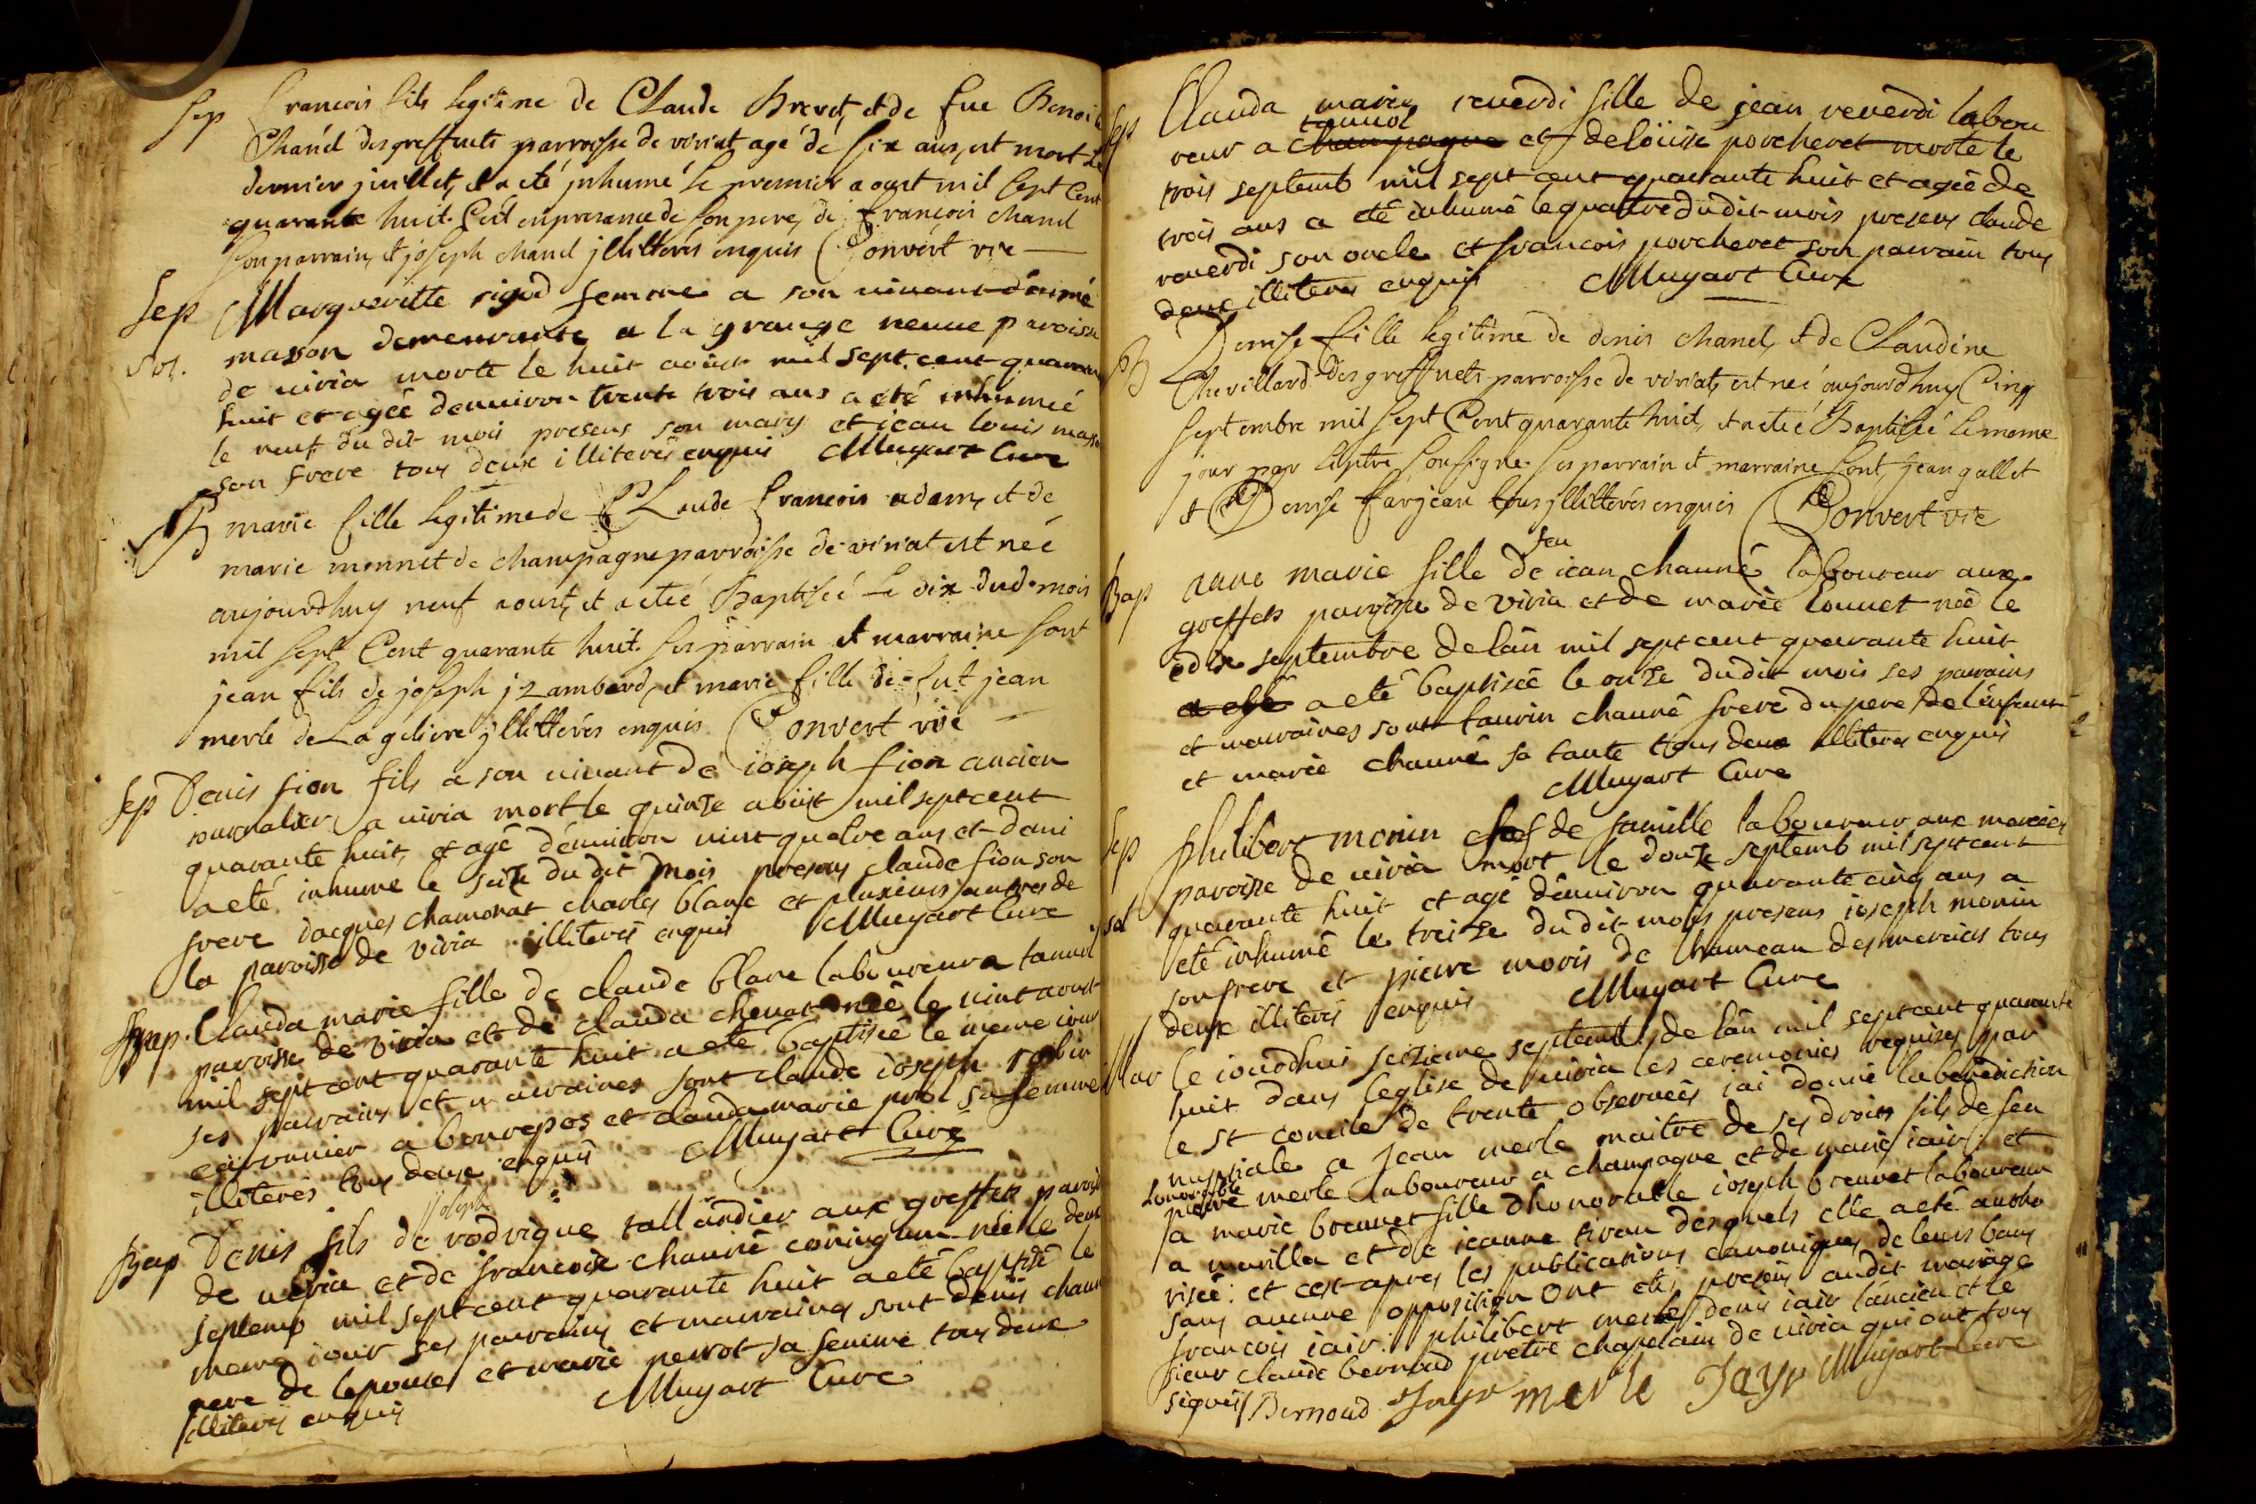 Sep francois fils legitime de Claude Brevet, et de fue Benoite
Chanel des greffets parroisse de viriat agé de six ans, est mort le
dernier juillet, et a eté jnhumé le premier aoust mil sept Cent
quarante huit. C'est en presance de son pere, de françois chanel
son parrain, et joseph chanel jllitterés enquis Convert vre
Sep Margueritte rigod femme a son vivant d'aimé
masson demeurante a la grange neuve paroisse
de viria morte le huit aoust mil sept cent quarante
huit et agéé denviron trente trois ans a eté inhumée
le neuf du dit mois presens son mary et jean louis masson
son frere tous deux illiterés enquis Muyart Cure
B marie fille legitime de Claude francois adam, et de
marie monnet de champagne parroisse de viriat est neé
aujourdhuy neuf aoust, et a eteé Baptiseé le dix dud. mois
mil sept Cent quarante huit. ses parrain et marraine sont
jean fils de joseph jzambard, et marie fille de fut jean
merle de La geliere jllitterés enquis Convert vre
Sep Denis fion fils a son vivant de joseph fion ancien
journalier a viria mort le quinze aoust mil sept cent
quarante huit, et agé denviron vint quatre ans et demi
a eté inhume le seize du dit mois presens claude fion son
frere jacques chamonat charles blanc et plusieurs autres de
la paroisse de viria illiterés enquis Muyart Cure
Bap. Clauda marie fille de claude blanc laboureur a tanvol
paroisse de viria et de clauda chenat neé le vint aoust
mil sept cent quarante huit a eté baptiseé le meme jour
ses parains et maraines sont claude joseph robin
a beurepos et clauda marie sa femme
illiterés tous deux enquis Muyart Cure
joseph
Bap Denis fils de rodrigue tallandier aux greffets paroisse
de viria et de francoise chauné conjugum né le deux
septemb mil sept cent quarante huit a eté baptisé le
meme jour ses parains et maraines sont denis chauné
pere de lepouse et marie perrot sa femme tous deux
illiterés enquis Muyart Cure
Sep Clauda marie reverdi fille de jean reverdi labou
tanvol
reur a champagne et de loüise porcheret morte le
trois septemb mil sept cent quarante huit et agéé de
trois ans a eté inhumé le quatre du dit mois presens claude
reverdi son oncle et francois porcheret son parain tous
deux illiteres enquis Muyart Cure
B Denise fille legitime de denis chanel, et de Claudine
Chevillard des greffets parroisse de viriat, est neé aujourdhuy Cinq
septembre mil sept Cent quarante huit, et a eteé Baptiseé le meme
jour par le ptre soussigne. ses parrain et marraine sont jean gallet
et Denise farjean tous jllitterés enquis Convert vre
feu
Bap anne marie fille de jean chauné laboureur aux
greffets paroisse de viria et de marie louuet neé le
dix septembre de lan mil sept cent quarante huit
a eté a eté baptiseé le onze du dit mois ses parains
et maraines sont taurin chauné frere du pere de lenfant
et marie chauné sa tante tous deux illiteres enquis
Muyart Cure
Sep philibert monin chef de famille laboureur aux merciers
paroisse de viria mort le douze septemb mil sept cent
quarante huit et agé denviron quarante cinq ans a
eté inhumé le treize du dit mois presens joseph monin
son frere et pierre moris de hameau des merciers tous
deux illiterés enquis Muyart Cure
Mar le jourdhui seizieme septemb, de lan mil sept cent quarante
huit dans leglise de viria les ceremonies requises par
le st concile de trente observeés jai donné la benediction
nuptiale a jean merle maitre de ses droits fils de feu
honorable
pierre merle laboureur a champagne et de marie jair; et
a marie breuvet fille dhonorable joseph breuvet laboureur
a marilla et de jeanne tivan desquels elle a eté autho
riseé. et cest apres les publications canoniques de leurs bans
sans aucune opposition ont eté presens audit mariage
francois jair. philibert merle, denis jair lancien et le
sieur claude bernoud pretre chapelain de viria qui ont tous
signés Bernoud Jayr merle Jayr Muyart Cure